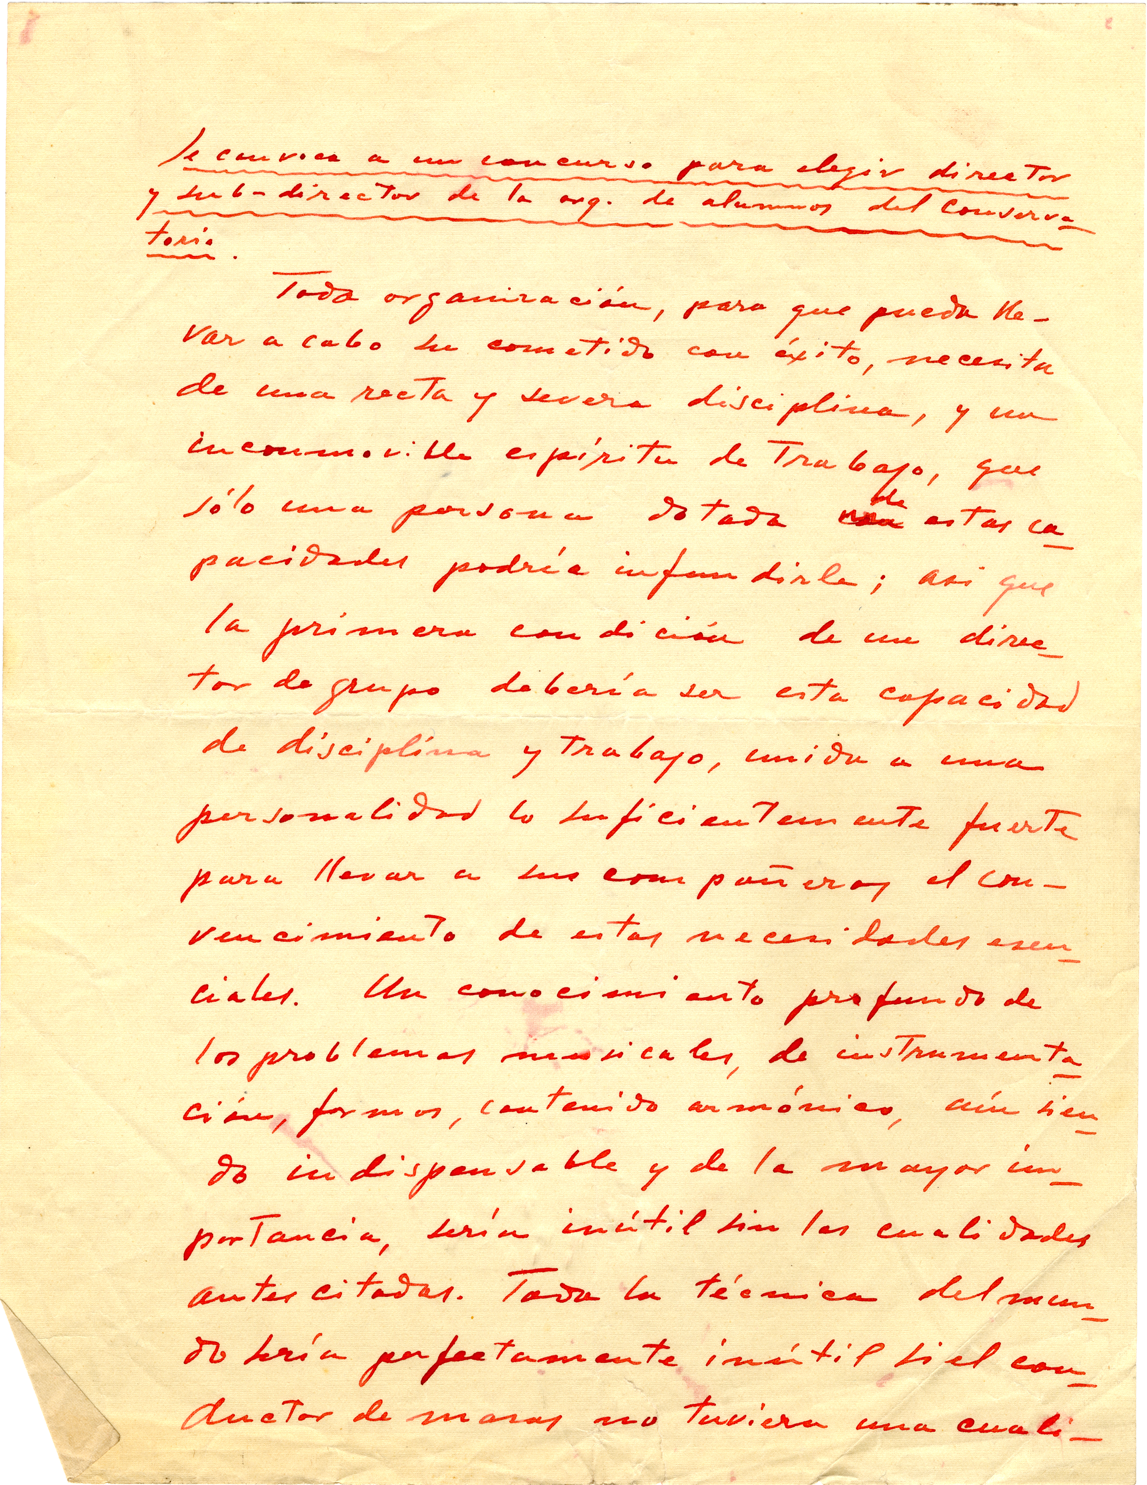 Se convoca a un concurso para elegir director
y sub-director de la orq. de alumnos del Conserva-
torio.
Toda organización, para que pueda lle-
var a cabo su cometido con éxito, necesita
de una recta y severa disciplina, y un
inconmovible espíritu de trabajo, que
sólo una persona dotada de estas ca-
pacidades podría infundirle; asi que
la primera condición de un direc-
tor de grupo debería ser esta capacidad
de disciplina y trabajo, unida a una
personalidad lo suficientemente fuerte
para llevar a sus compañeros el con-
vencimiento de estas necesidades esen-
ciales. Un conocimiento profundo de
los problemas musicales, de instrumenta-
ción, formas, contenido armónico, aún sien-
do indispensable y de la mayor im-
portancia, sería inútil sin las cualidades
antes citadas. Toda la técnica del mun-
do sería perfectamente inútil si el con-
ductor de masas no tuviera una cuali-